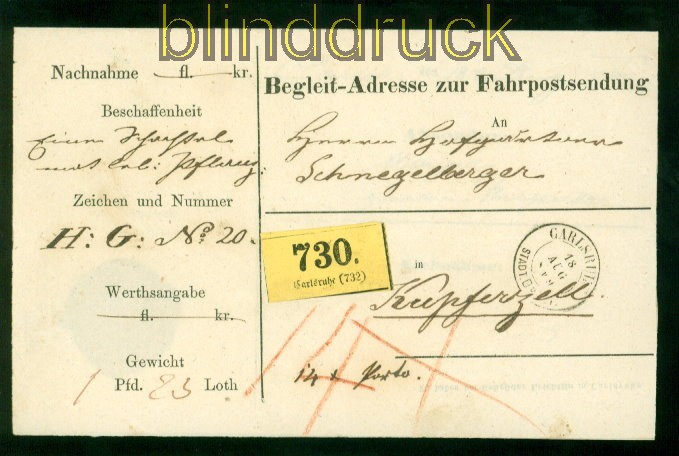 blinddruck
Nachnahme fl. kr.
Beschaffenheit
Eine Schachtel
mit leb: Pflanz:
Zeichen und Nummer
H: G: No. 20.
Werthsangabe
fl. kr.
Gewicht
1 Pfd. 23 Loth
Begleit-Adresse zur Fahrpostsendung
An
Herrn Hofgärtner
Schnegelberger
730.
Carlsruhe (732)
in
Kupferzell.
CARLSRUHE
18
AUG
STADTPOST
14 x Porto.